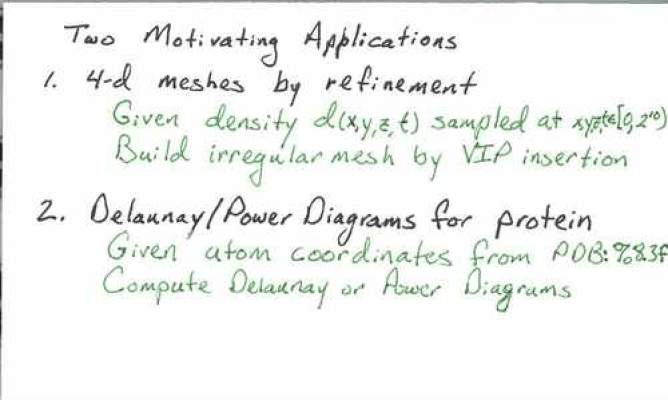 Two Motivating Applications
1. 4-d meshes by refinement
Given density d(x,y,z,t) sampled at xyzt∈[0,2¹⁰)
Build irregular mesh by VIP insertion
2. Delaunay/Power Diagrams for protein
Given atom coordinates from PDB:%8.3f
Compute Delaunay or Power Diagrams